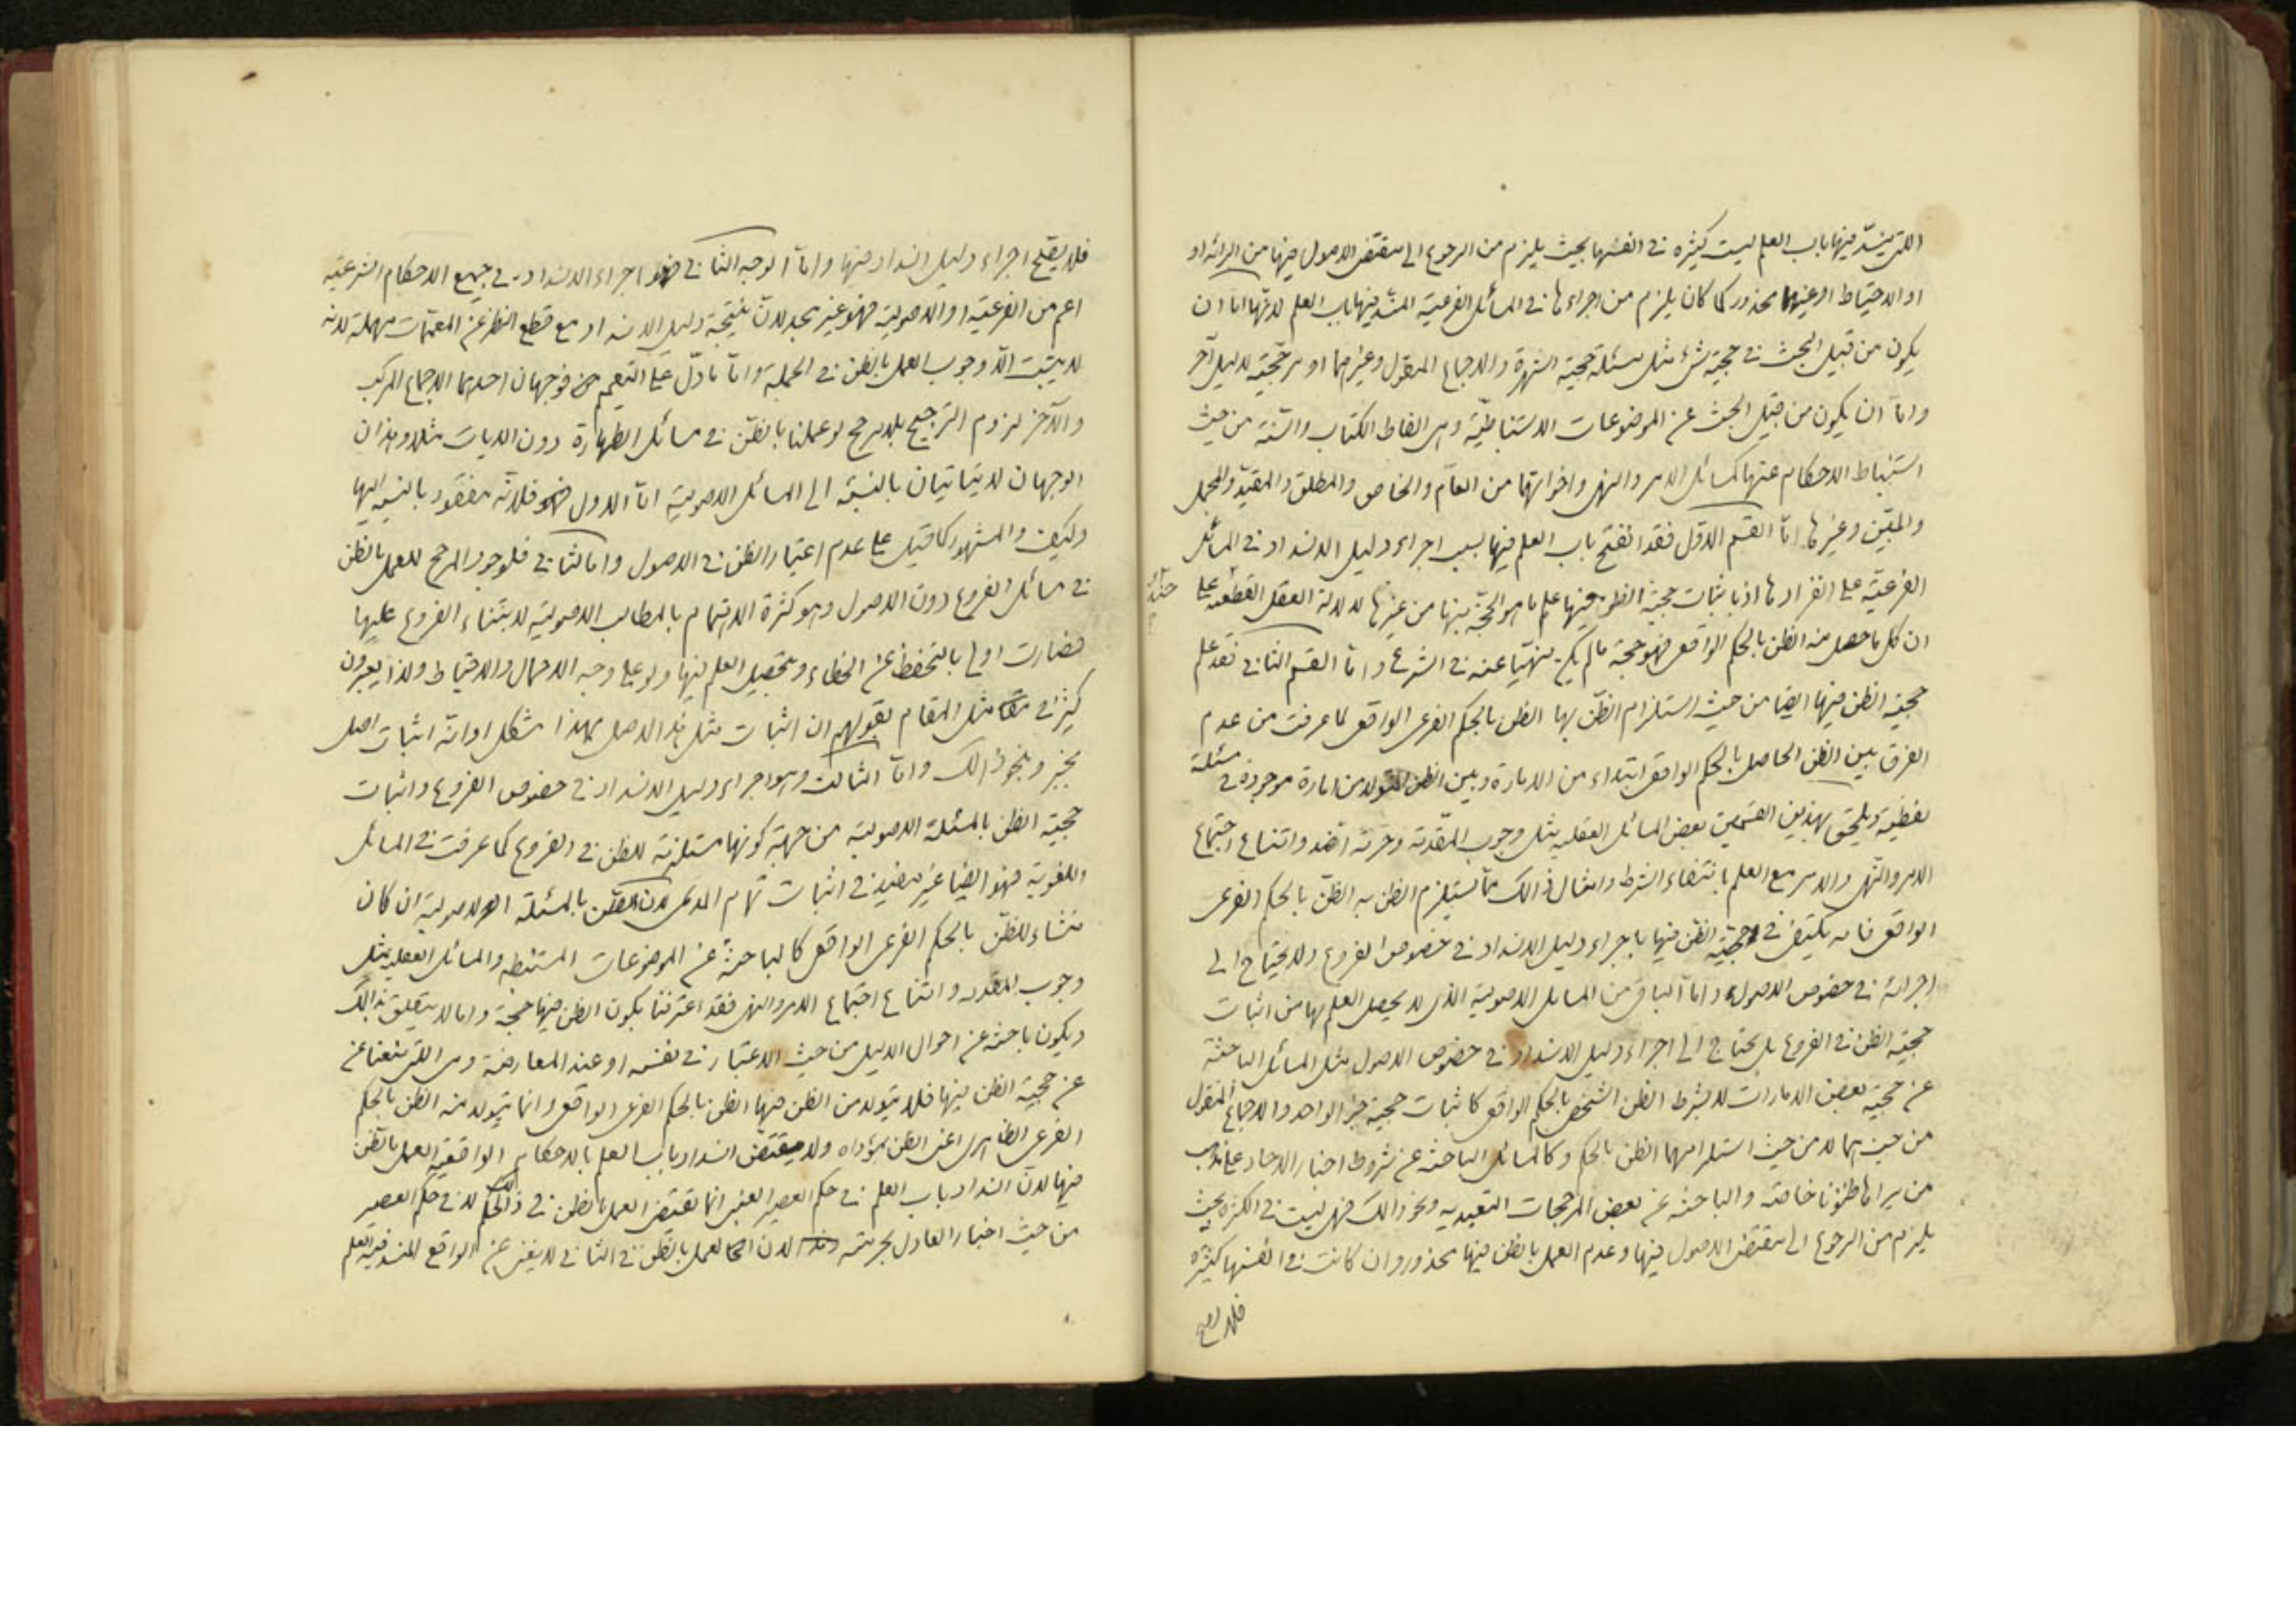 التى ينسدّ فيها باب العلم ليست كثيرة فى انفسها بحيث يلزم من الرجوع الى مقتضى الاصول فيها من البرائة او
او الاحتياط او غيرهما محذور كما كان يلزم من اجراءها فى المسائل الفرعية المنسدّ فيها باب العلم لانّها امّا ان
يكون من قبيل البحث فى حجية شئ مثل مسئلة حجية الشهرة والاجماع المنقول وغيرهما او مرجّحيّة لدليل آخر
وامّا ان يكون من قبيل البحث عن الموضوعات الاستنباطيّة وهى الفاظ الكتاب والسّنة من حيث
استنباط الاحكام عنها كمسائل الامر والنهى واخواتهما من العامّ والخاص والمطلق والمقيّد والمجمل
والمبيّن وغيرها امّا القسم الاوّل فقد انفتح باب العلم فيها بسبب اجراء دليل الانسداد فى المسائل
الفرعيّة على انفرادها اذ باثبات حجية الظن فيها علم ما هو الحجّة منها من غيرها لدلالة العقل القطعية على
ان كل ما حصل منه الظن بالحكم الواقعى فهو حجة ما لم يكن منهيّا عنه فى الشرع وامّا القسم الثانى فقد علم
حجية الظن فيها ايضا من حيث استلزام الظنّ بها الظن بالحكم الفرعى الواقعى لما عرفت من عدم
الفرق بين الظن الحاصل بالحكم الواقعى ابتداء من الامارة وبين الظن المتولد من امارة موجودة فى مسئلة
لفظية ويلحق بهذين القسمين بعض المسائل العقلية مثل وجوب المقدّمة وحرمة الضد وامتناع اجتماع
الامر والنّهى والامر مع العلم بانتفاء الشرط وامثال ذالك ممّا يستلزم الظن به الظنّ بالحكم الفرعى
الواقعى فانه يكتفى فى حجيّة الظن فيها باجراء دليل الانسداد فى خصوص الفروع ولا يحتاج الى
اجرائه فى خصوص الاصول وامّا الباقى من المسائل الاصولية الذى لا يحصل العلم بها من اثبات
حجية الظن فى الفروع بل يحتاج الى اجراء دليل الانسداد فى خصوص الاصول مثل المسائل الباحثة
عن حجية بعض الامارات لا بشرط الظن الشخصى بالحكم الواقعى كاثبات حجية خبر الواحد والاجماع المنقول
من حيث هما لا من حيث استلزامهما الظن بالحكم وكالمسائل الباحثة عن شروط اخبار الاحاد على مذهب
من يراها ظنونا خاصّة والباحثه عن بعض المرجحات التعبدية ونحو ذالك فهى ليست فى الكثرة بحيث
يلزم من الرجوع الى مقتضى الاصول فيها وعدم العمل بالظن فيها محذور وان كانت فى انفسها كثيرة
فلا يصح
فلا يصحّ اجراء دليل انسداد فيها وامّا الوجه الثانى فهو اجراء الانسداد فى جميع الاحكام الشرعيّة
اعم من الفرعيّة او الاصولية فهو غير مجد لانّ نتيجة دليل الانسداد مع قطع النظر عن المعمّمات مهملة لانه
لا يثبت الّا وجوب العمل بالظن فى الجملة وامّا ما دلّ على التعميم فوجهان احدهما الاجماع المركب
والآخر لزوم الترجيح بلا مرجح لو عملنا بالظنّ فى مسائل الطهارة دون الديات مثلا وهذان
الوجهان لا يتاتيان بالنسبة الى المسائل الاصولية امّا الاول فلانّه مفقود بالنسبة اليها
وكيف والمشهور كما قيل على عدم اعتبار الظن فى الاصول واما الثانى فلوجود المرجح للعمل بالظن
فى مسائل الفروع دون الاصول وهو كثرة الاهتمام بالمطالب الاصولية لابتناء الفروع عليها
فصارت اولى بالتحفظ عن الخطاء وتحصيل العلم فيها ولو على وجه الاجمال والاحتياط ولذا يعبرون
كثيرا فى مثل المقام بقولهم ان اثبات مثل هذا الاصل بهذا مشكل او انّه اثبات اصل
بخبر ونحو ذالك وامّا الثالث وهو اجراء دليل الانسداد فى خصوص الفروع واثبات
حجية الظن بالمسئلة الاصولية من جهة كونها مستلزمة للظن فى الفروع كما عرفت فى المسائل
اللغوية فهو ايضا غير مفيد فى اثبات تمام المدعى لان الظن بالمسئلة الاصولية ان كان
منشاء للظنّ بالحكم الفرعى الواقعى كالباحثة عن الموضوعات المستنبطه والمسائل العقلية مثل
وجوب المقدمه وامتناع اجتماع الامر والنهى فقد اعترفنا بكون الظن فيها حجة واما لا يتعلق بذالك
ويكون باحثة عن احوال الدليل من حيث الاعتبار فى نفسه او عند المعارضة وهى التى منعنا عن
عن حجية الظن فيها فلا يتولد من الظن فيها الظن بالحكم الفرعى الواقعى وانما يتولد منه الظن بالحكم
الفرعى الظاهرى اعنى الظن بمؤداه ولا يقتضى انسداد باب العلم بالاحكام الواقعية العمل بالظن
فيها لانّ انسداد باب العلم فى حكم العصير العنبى انما يقتضى العمل بالظن فى ذالك الحكم لا فى حكم العصير
من حيث اخبار العادل بحرمته لان العمل بالظن فى الثانى لا يغنى عن الواقع المنسد فيه العلم